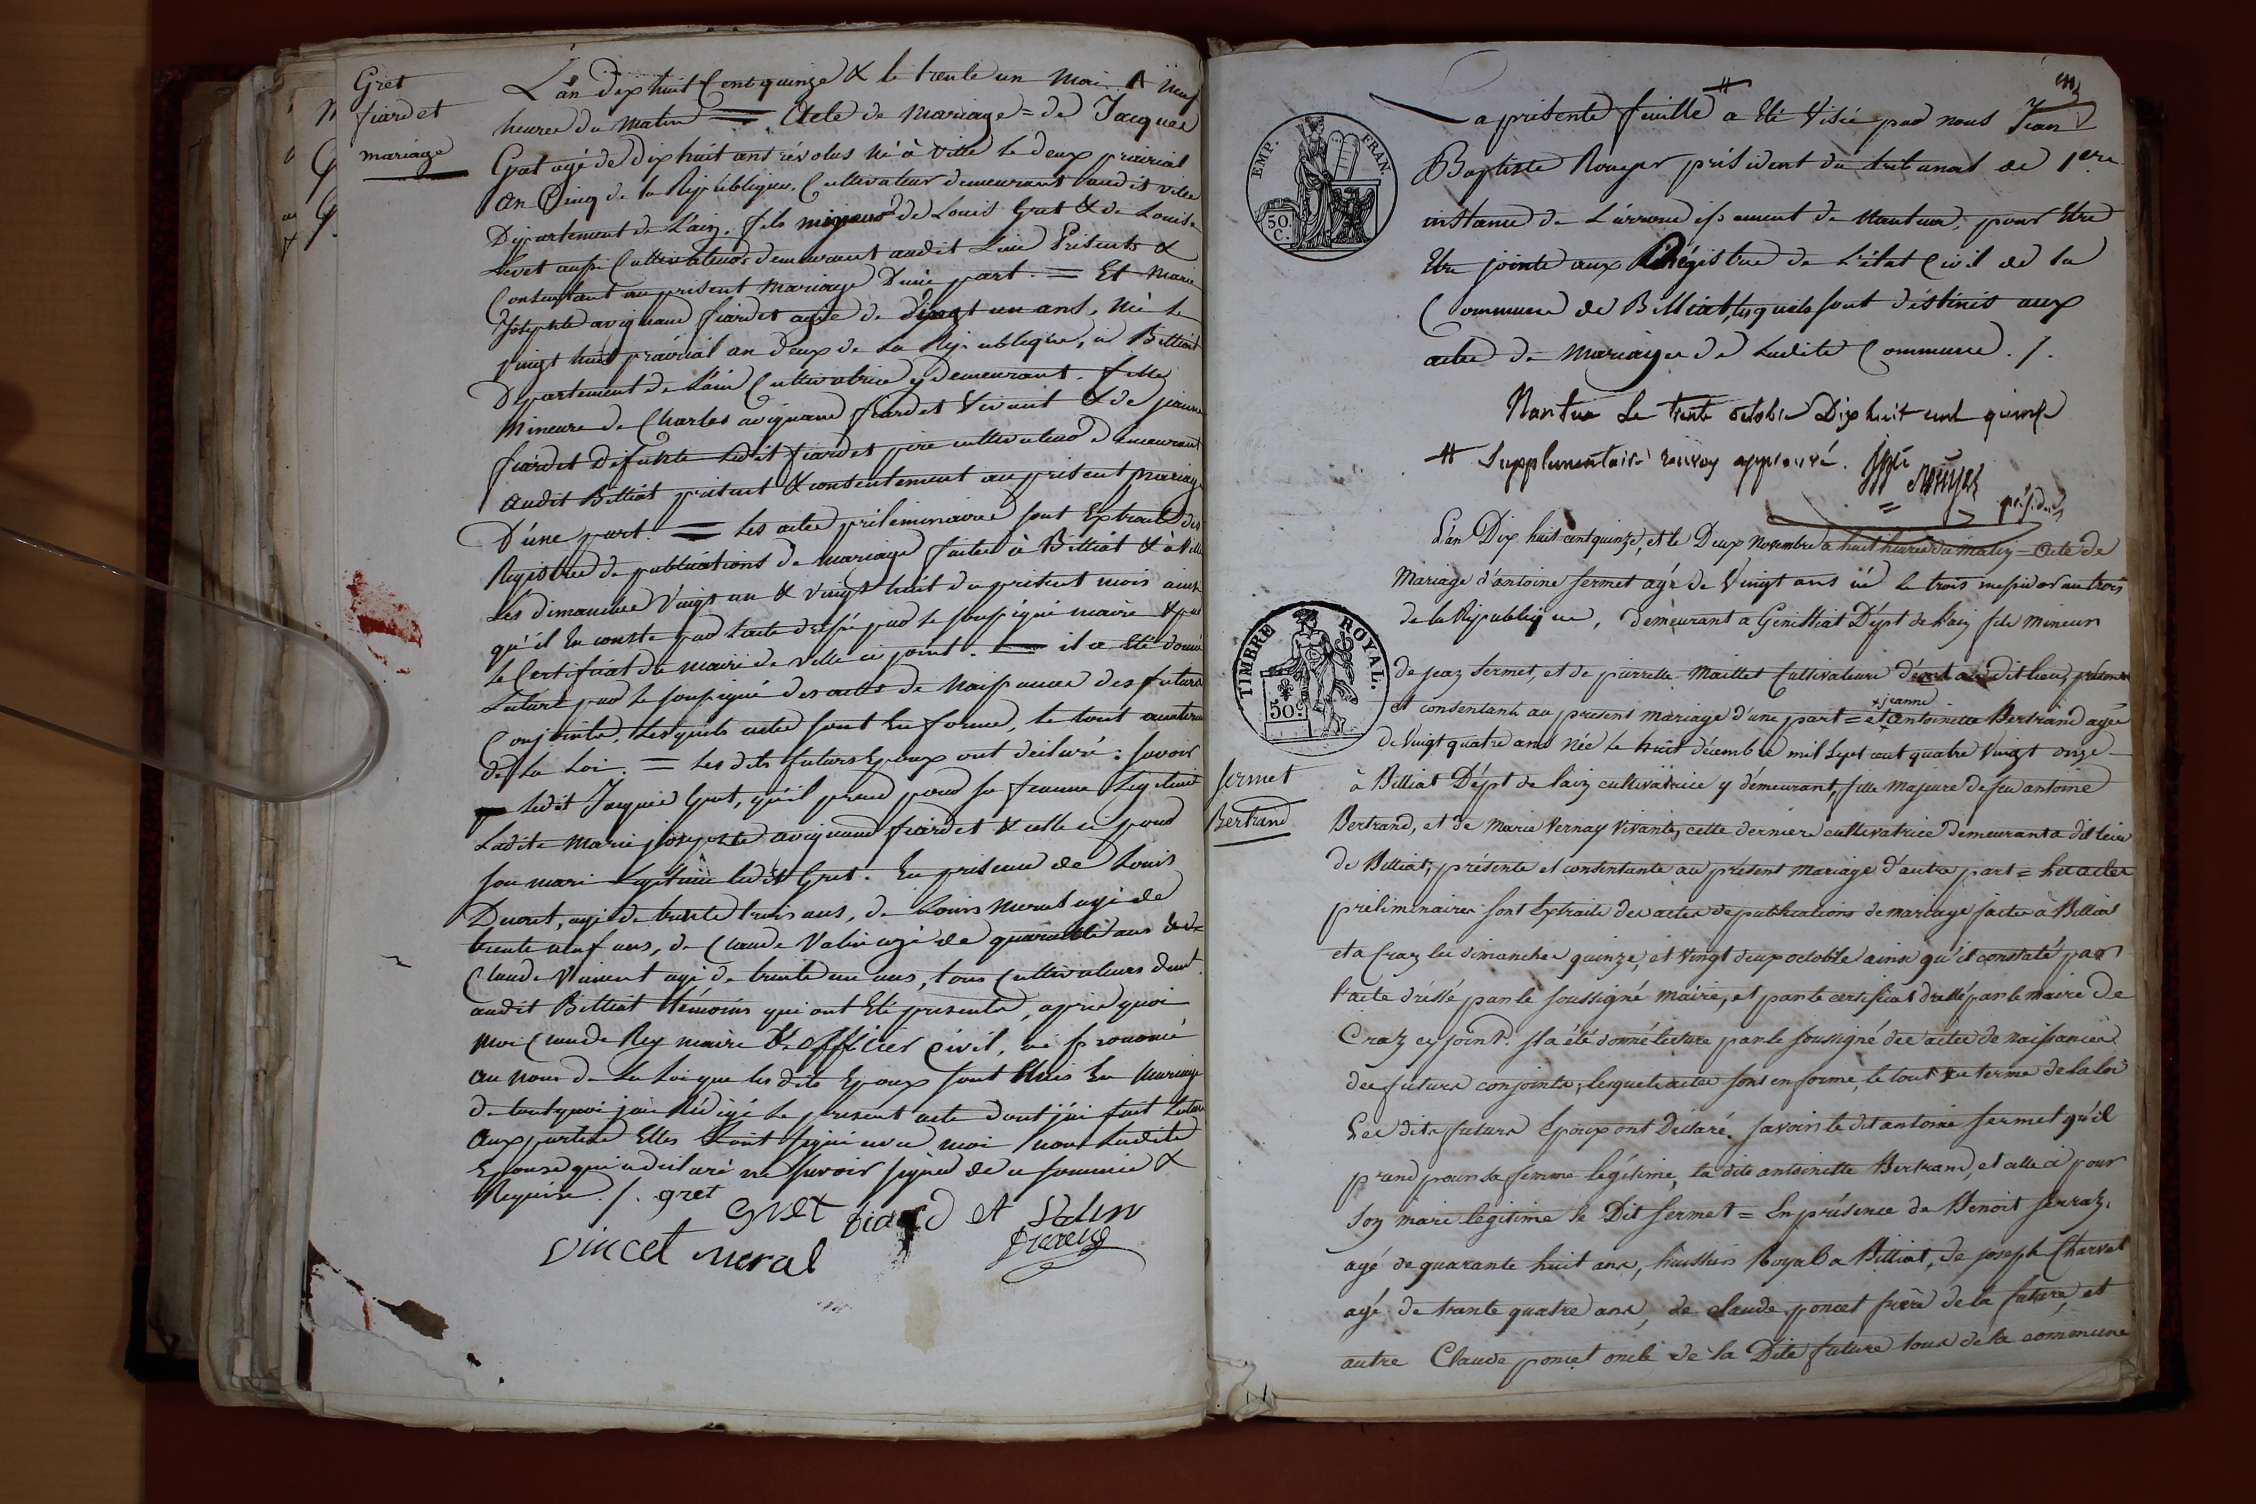 Gret
fiardet
mariage
L'an dix huit Cent quinze & le trente un Mai A neuf
heures du Matin = Acte de Mariage = de Jacques
Gret agé de dix huit ans révolus né à Ville le deux prairial
an Cinq de la République, Cultivateur demeurant audit ville
Département de L'ain, fils mineur de Louis Gret & de Louise
Levet aussi Cultivateurs demeurant audit Lieu Présents &
Consentant au present Mariage D'une part. = Et Marie
Josephte avignand fiardet agée de vingt un ans, Né le
vingt huit prairial an deux de La République, à Billiat
Département de L'ain Cultivatrice y demeurant, fille
Mineure de Charles avignand fiardet Vivant & de
fiardet Défunte Ledit fiardet père cultivateur demeurant
audit Billiat présent & consentement au présent mariage
D'une part. = Les actes préliminaires sont Extraits des
Registres de publications de mariage faites à Billiat & à Ville
Les dimanches Vingt un & vingt huit du présent mois ainsi
qu'il En conste par L'acte dressé par le soussigné maire & par
le Certificat du maire de Ville ci joint. = il a Eté donné
Lecture par le soussigné des actes de Naissance des futurs
Conjoints, Lesquels actes sont En forme, le tout aux termes
de La Loi. = Les dits futurs Epoux ont déclaré : savoir
Ledit Jacques Gret, qu'il prend pour sa femme Legitime
Ladite Marie josephte avignand fiardet & celle ci pour
son mari Legitime ledit Gret. En présence de Louis
Ducret, agé de trente trois ans, de Louis Meral agé de
trente neuf ans, de Claude Valin agé de quarante ans & de
Claude Vincent agé de trente un ans, tous Cultivateurs demt.
audit Billiat témoins qui ont Eté présents, après quoi
Moi Claude Rey maire & officier Civil, ai prononcé
au nom de La Loi que les dits Epoux sont Unis En Mariage
de tout quoi j'ai Rédigé Le présent acte dont j'ai fait Lecture
aux parties Elles L'ont signé avec moi non Ladite
Epouse qui a déclaré ne savoir signer de ce sommée &
Requise. /. gret
gret fiard et Valin
Vincet meral
La présente feuille # a Eté Visée par nous Jean
Baptiste Rouyer président du tribunal de 1ere.
instance de L'arrondissement de Nantua, pour Etre
Etre jointe aux Régistres de L'état Civil de la
Commune de Billiat, lesquels sont déstinés aux
actes de Mariages de Ladite Commune. /.
Nantua Le trente octobre Dix huit cent quinze
# Supplementaire renvoy approuvé.
Rouyer
présidt
EMP. FRAN.
50. C.
TIMBRE ROYAL.
50c
Sermet
Bertrand
L'an Dix huit cent quinze, et le Deux Novembre a huit heures du matin = acte de
Mariage d'antoine Sermet agé de Vingt ans né le trois messidor an trois
de la République, demeurant a Génissiat Dépt de l'ain fils mineur
de jean Sermet, et de pierrette Maillet Cultivateurs audit lieu, présent
+jeanne
et consentant au present mariage d'une part = et + antoinette Bertrand agée
de Vingt quatre ans Née le huit décembre mil Sept cent quatre Vingt onze
à Billiat Dépt de l'ain cultivatrice y démeurant, fille Majeure de feu antoine
Bertrand, et de Marie Vernay Vivante, cette derniere cultivatrice demeurant a dit lieu
de Billiat, présente et consentante au présent Mariage d'autre part = Les actes
préliminaires sont Extraits des actes de publications de mariage faites à Billiat
et a Craz les dimanches quinze, et vingt deux octobre ainsi qu'il constaté par
l'acte dréssé par le soussigné Maire, et par le certificat dressé par le maire de
Craz cy joint. Il a été donné lecture par le soussigné des actes de naissances
des futurs conjoints, lesquels actes sont en forme, le tout au terme de la loi
Les dits futurs Epoux ont Déclaré. Savoir le dit antoine Sermet qu'il
prend pour sa femme légitime, la dite antoinette Bertrand, et celle ci pour
Son mari legitime le Dit Sermet = En présence de Benoit Serraz,
agé de quarante huit ans, huissier Royal a Billiat, de joseph Charvet
agé de trante quatre ans, de claude poncet frère de la future, et
autre Claude poncet oncle de la Dite future tous de la commune